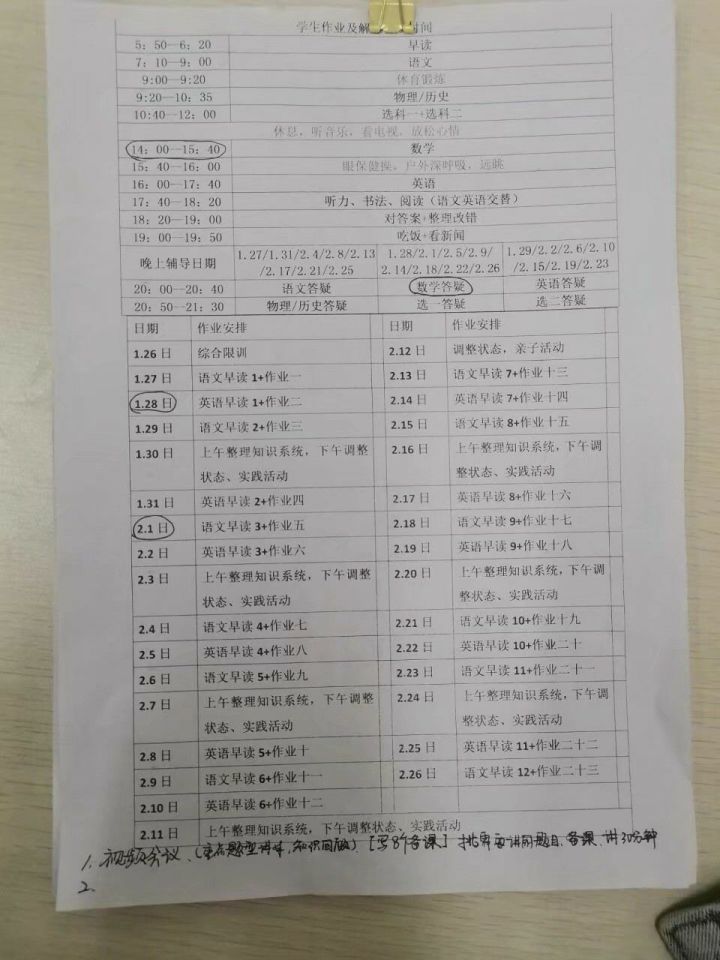 学生作业及解 时间
5：50—6：20 早读
7：10—9：00 语文
9:00—9:20 体育锻炼
9:20—10：35 物理/历史
10:40—12：00 选科一+选科二
休息，听音乐，看电视，放松心情
14：00—15：40 数学
15：40—16：00 眼保健操，户外深呼吸，远眺
16：00—17：40 英语
17：40—18：20 听力、书法、阅读（语文英语交替）
18：20—19：00 对答案+整理改错
19：00—19：50 吃饭+看新闻
晚上辅导日期 1.27/1.31/2.4/2.8/2.13/2.17/2.21/2.25 1.28/2.1/2.5/2.9/2.14/2.18/2.22/2.26 1.29/2.2/2.6/2.10/2.15/2.19/2.23
20：00—20：40 语文答疑 数学答疑 英语答疑
20：50—21：30 物理/历史答疑 选一答疑 选二答疑
日期 作业安排 日期 作业安排
1.26 日 综合限训 2.12 日 调整状态，亲子活动
1.27 日 语文早读 1+作业一 2.13 日 语文早读 7+作业十三
1.28 日 英语早读 1+作业二 2.14 日 英语早读 7+作业十四
1.29 日 语文早读 2+作业三 2.15 日 语文早读 8+作业十五
1.30 日 上午整理知识系统，下午调整状态、实践活动 2.16 日 上午整理知识系统，下午调整状态、实践活动
1.31 日 英语早读 2+作业四 2.17 日 英语早读 8+作业十六
2.1 日 语文早读 3+作业五 2.18 日 语文早读 9+作业十七
2.2 日 英语早读 3+作业六 2.19 日 英语早读 9+作业十八
2.3 日 上午整理知识系统，下午调整状态、实践活动 2.20 日 上午整理知识系统，下午调整状态、实践活动
2.4 日 语文早读 4+作业七 2.21 日 语文早读 10+作业十九
2.5 日 英语早读 4+作业八 2.22 日 英语早读 10+作业二十
2.6 日 语文早读 5+作业九 2.23 日 语文早读 11+作业二十一
2.7 日 上午整理知识系统，下午调整状态、实践活动 2.24 日 上午整理知识系统，下午调整状态、实践活动
2.8 日 英语早读 5+作业十 2.25 日 英语早读 11+作业二十二
2.9 日 语文早读 6+作业十一 2.26 日 语文早读 12+作业二十三
2.10 日 英语早读 6+作业十二
2.11 日 上午整理知识系统，下午调整状态、实践活动
1. 视频会议、（重点题型讲解，知识回顾） 备课] 挑需要讲的题目、备课、讲30分钟
2.